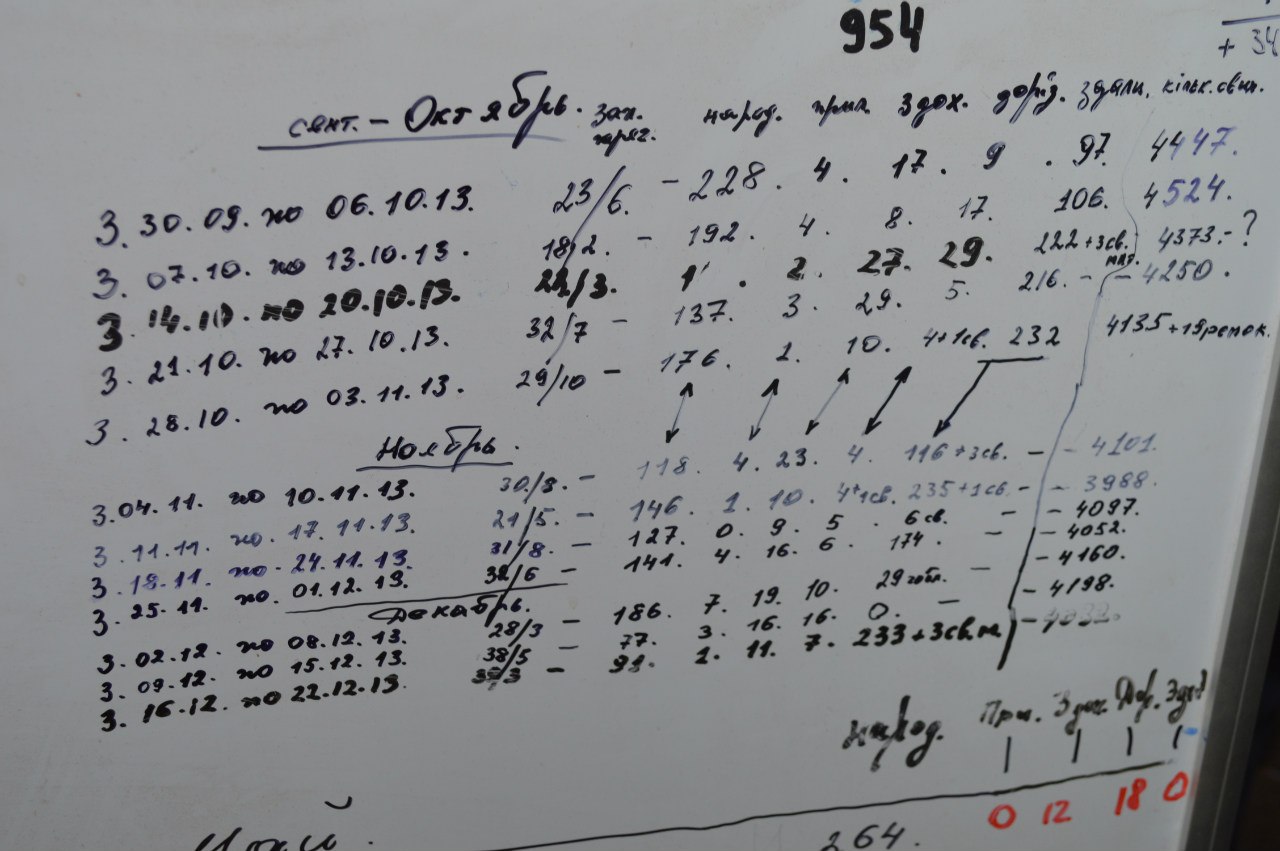 954
+ 34
сент. - Октябрь. зах. народ. прип. здох. доріз. здали, кільк. свин.
З. 30.09. по 06.10.13. 23/6. - 228. 4. 17. 9. 97. 4447.
З. 07.10. по 13.10.13. 18/2. - 192. 4. 8. 17. 106. 4524.
З. 14.10. по 20.10.13. /3. 1 . 2. 27. 29. 222+3св. мат. 4373.-?
З. 21.10. по 27.10.13. 32/7 - 137. 3. 29. 5. 216. - - 4250.
З. 28.10. по 03.11.13. 29/10 - 176. 1. 10. 4+1св. 232 4135+19
Ноябрь.
З. 04.11. по 10.11.13. 30/8. - 118. 4. 23. 4. 116+3св. - - 4101.
З. 11.11. по. 17.11.13. 21/5. - 146. 1. 10. 4+1св. 235+1св. - - 3988.
З. 18.11. по. 24.11.13. 31/8. - 127. 0. 9. 5. 6св. - - 4097.
З. 25.11. по. 01.12.13. 32/6 - 141. 4. 16. 6. 174. - - 4052.
Декабрь.
З. 02.12. по 08.12.13. 28/3 - 186. 7. 19. 10. 29 - - 4160.
З. 09.12. по 15.12.13. 38/5 - 77. 3. 16. 16. 0. - - 4198.
З. 16.12. по 22.12.13. /3 - 91. 2. 11. 7. 233+3св.м - 4032.
народ. При. Здох. Дор.
0 12 18 0
264.